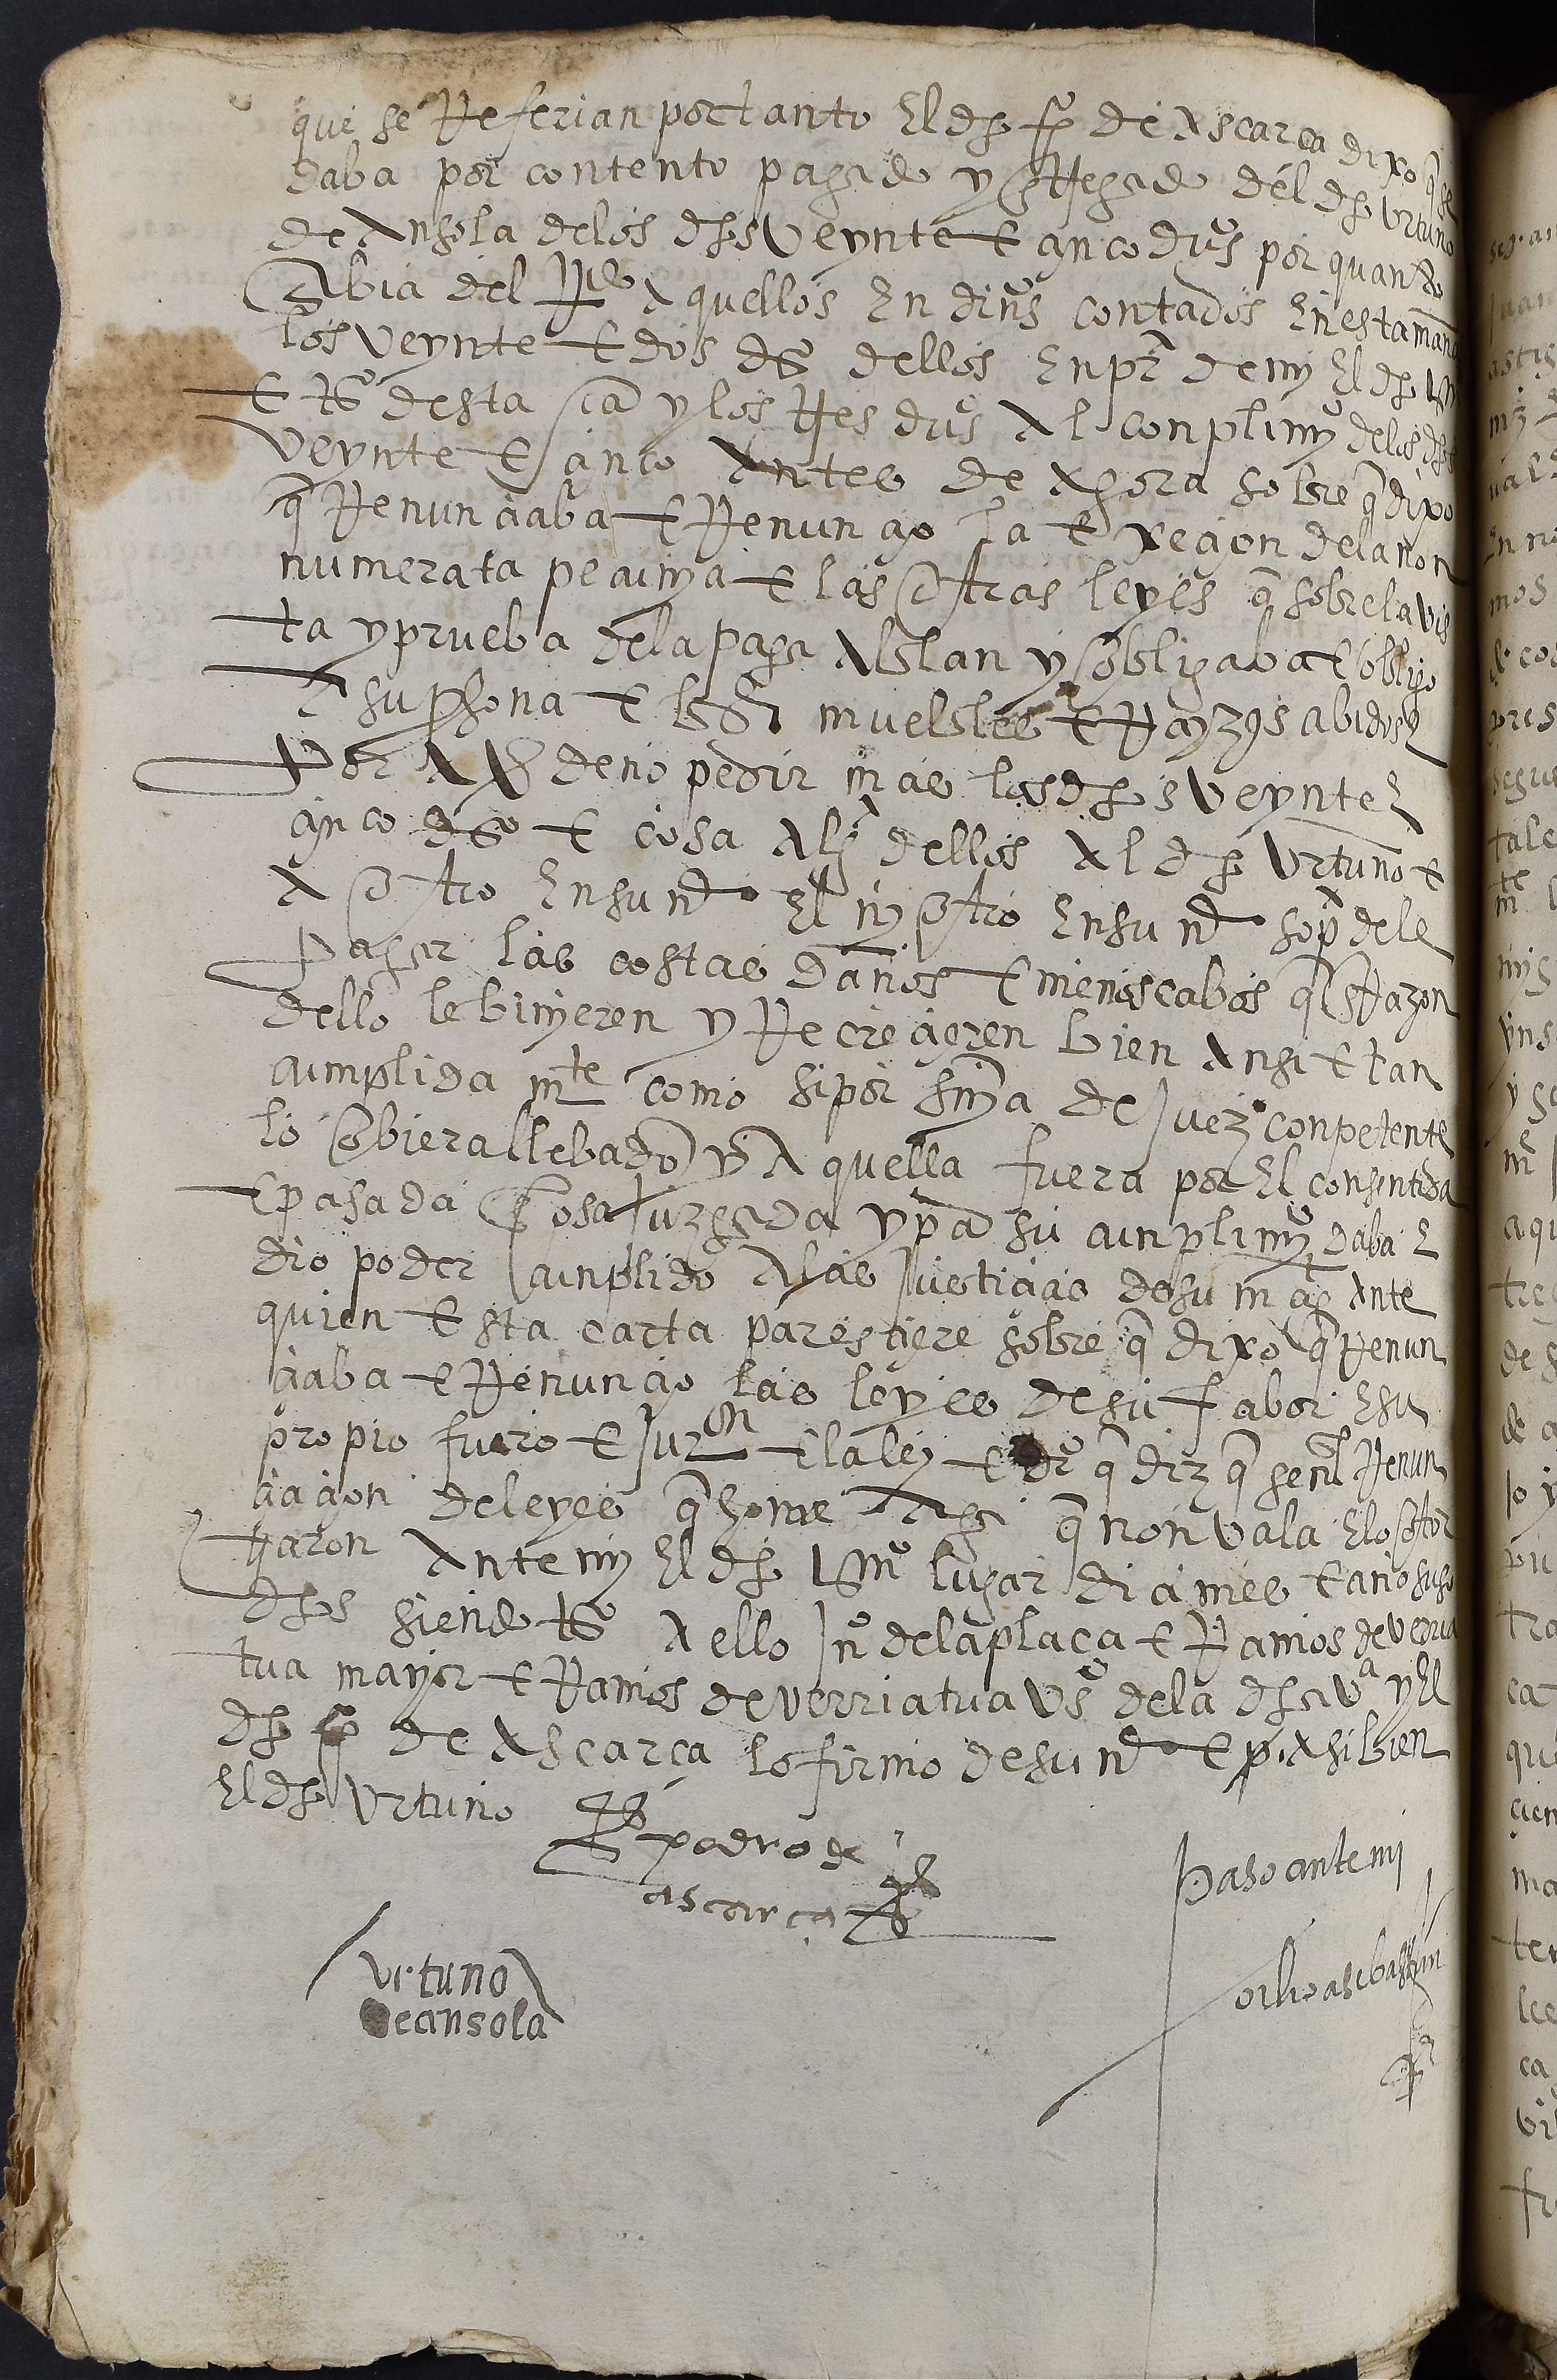 que se Referian por tanto El dho po de Ascarça dixo q se
daba por contento pagado y entregado del dho Urtuno
de Ansola delos dhos veynte E cinco dus por quanto
Abia del rrdo Aquellos En dinos contados En esta mana
los veynte E dos ds dellos En pra de my El dho esno
E tos desta ca y los tres dus Al conplimyo delos dhos
veynte E cinco Antes de Agora sobre q dixo
q Renunciaba E Renuncio la Execion dela non
numerata pecunya E las otras leyes q sobre la vis
ta y prueba dela paga Ablan y obligaba E obligo
A su persona E bs muebles E Rayzes abidos E
Por Aber de no pedir mas los dhos veynte E
cinco ds E cosa Alga dellos Al dho Urtuno E
A otro En su no El ny otro En su no so pa dele
Pagar las costas daños E menoscabos q A Razon
dello le binyeren y Recrecieren bien Ansi E tan
cumplida mte como si por snya de Juez conpetente
lo obiera llebado y Aquella fuera por El consentida
E pasada En cosa Juzgada y pa su cunplimyo daba E
dio poder cunplido A las Justicias de su mag Ante
quien Esta carta paresciere sobre q dixo q Renun
ciaba E Renuncio las leyes de su fabor E su
propio fuero E Juron E la ley E dro q diz q general Renun
ciacion de leyes q home aga q non vala E lo otor
garon Ante my El dho esno lugar dia mes E año suso
dhos siendo tos A ello Jno dela plaça E Ramos de verria
tua mayor E Ramos de verriatua vos dela dha va y El
dho po de Ascarça lo firmo de su no E Asi bien
El dho Urtuno
pedro de
ascarça
Paso ante mi
Urtuno
de ansola